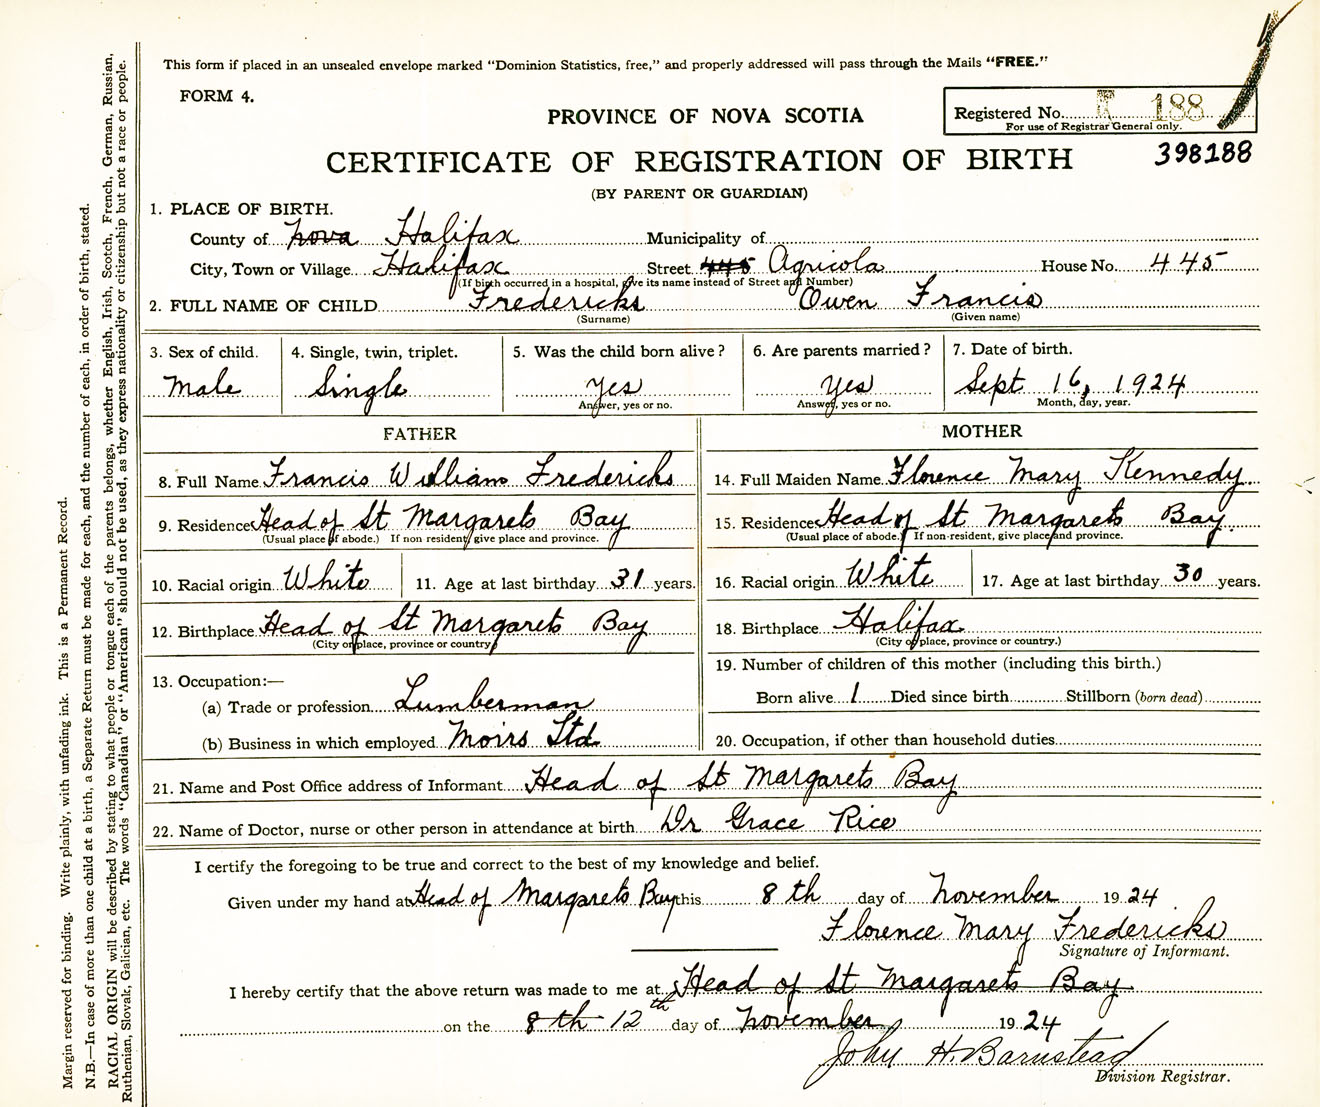 This form if placed in an unsealed envelope marked "Dominion Statistics, free," and properly addressed will pass through the Mails "FREE."
FORM 4.
PROVINCE OF NOVA SCOTIA
Registered No. 188
For use of Registrar General only.
398188
CERTIFICATE OF REGISTRATION OF BIRTH
(BY PARENT OR GUARDIAN)
1. PLACE OF BIRTH.
County of Nova Halifax Municipality of
City, Town or Village Halifax Street 445 Agricola House No. 445
(If birth occurred in a hospital, give its name instead of Street and Number)
2. FULL NAME OF CHILD Fredericks Owen Francis
(Surname) (Given name)
3. Sex of child. 4. Single, twin, triplet. 5. Was the child born alive? 6. Are parents married? 7. Date of birth.
Male Single Yes Yes Sept 16, 1924
Answer, yes or no. Answer, yes or no. Month, day, year.
FATHER MOTHER
8. Full Name Francis William Fredericks 14. Full Maiden Name Florence Mary Kennedy
9. Residence Head of St Margarets Bay 15. Residence Head of St Margarets Bay.
(Usual place of abode.) If non resident, give place and province. (Usual place of abode.) If non-resident, give place and province.
10. Racial origin White 11. Age at last birthday 31 years. 16. Racial origin White 17. Age at last birthday 30 years.
12. Birthplace Head of St Margarets Bay 18. Birthplace Halifax
(City or place, province or country) (City or place, province or country.)
13. Occupation:— 19. Number of children of this mother (including this birth.)
(a) Trade or profession Lumberman Born alive 1 Died since birth Stillborn (born dead)
(b) Business in which employed Moirs Ltd. 20. Occupation, if other than household duties
21. Name and Post Office address of Informant Head of St Margarets Bay
22. Name of Doctor, nurse or other person in attendance at birth Dr Grace Rice
I certify the foregoing to be true and correct to the best of my knowledge and belief.
Given under my hand at Head of Margarets Bay this 8th day of November 1924
Florence Mary Fredericks
Signature of Informant.
I hereby certify that the above return was made to me at Head of St Margarets Bay
on the 8th 12th day of November 1924
John H. Barnstead
Division Registrar.
Margin reserved for binding. Write plainly, with unfading ink. This is a Permanent Record.
N.B.—In case of more than one child at a birth, a Separate Return must be made for each, and the number of each, in order of birth, stated.
RACIAL ORIGIN will be described by stating to what people or tongue each of the parents belongs, whether English, Irish, Scotch, French, German, Russian,
Ruthenian, Slovak, Galician, etc. The words "Canadian" or "American" should not be used, as they express nationality or citizenship but not a race or people.